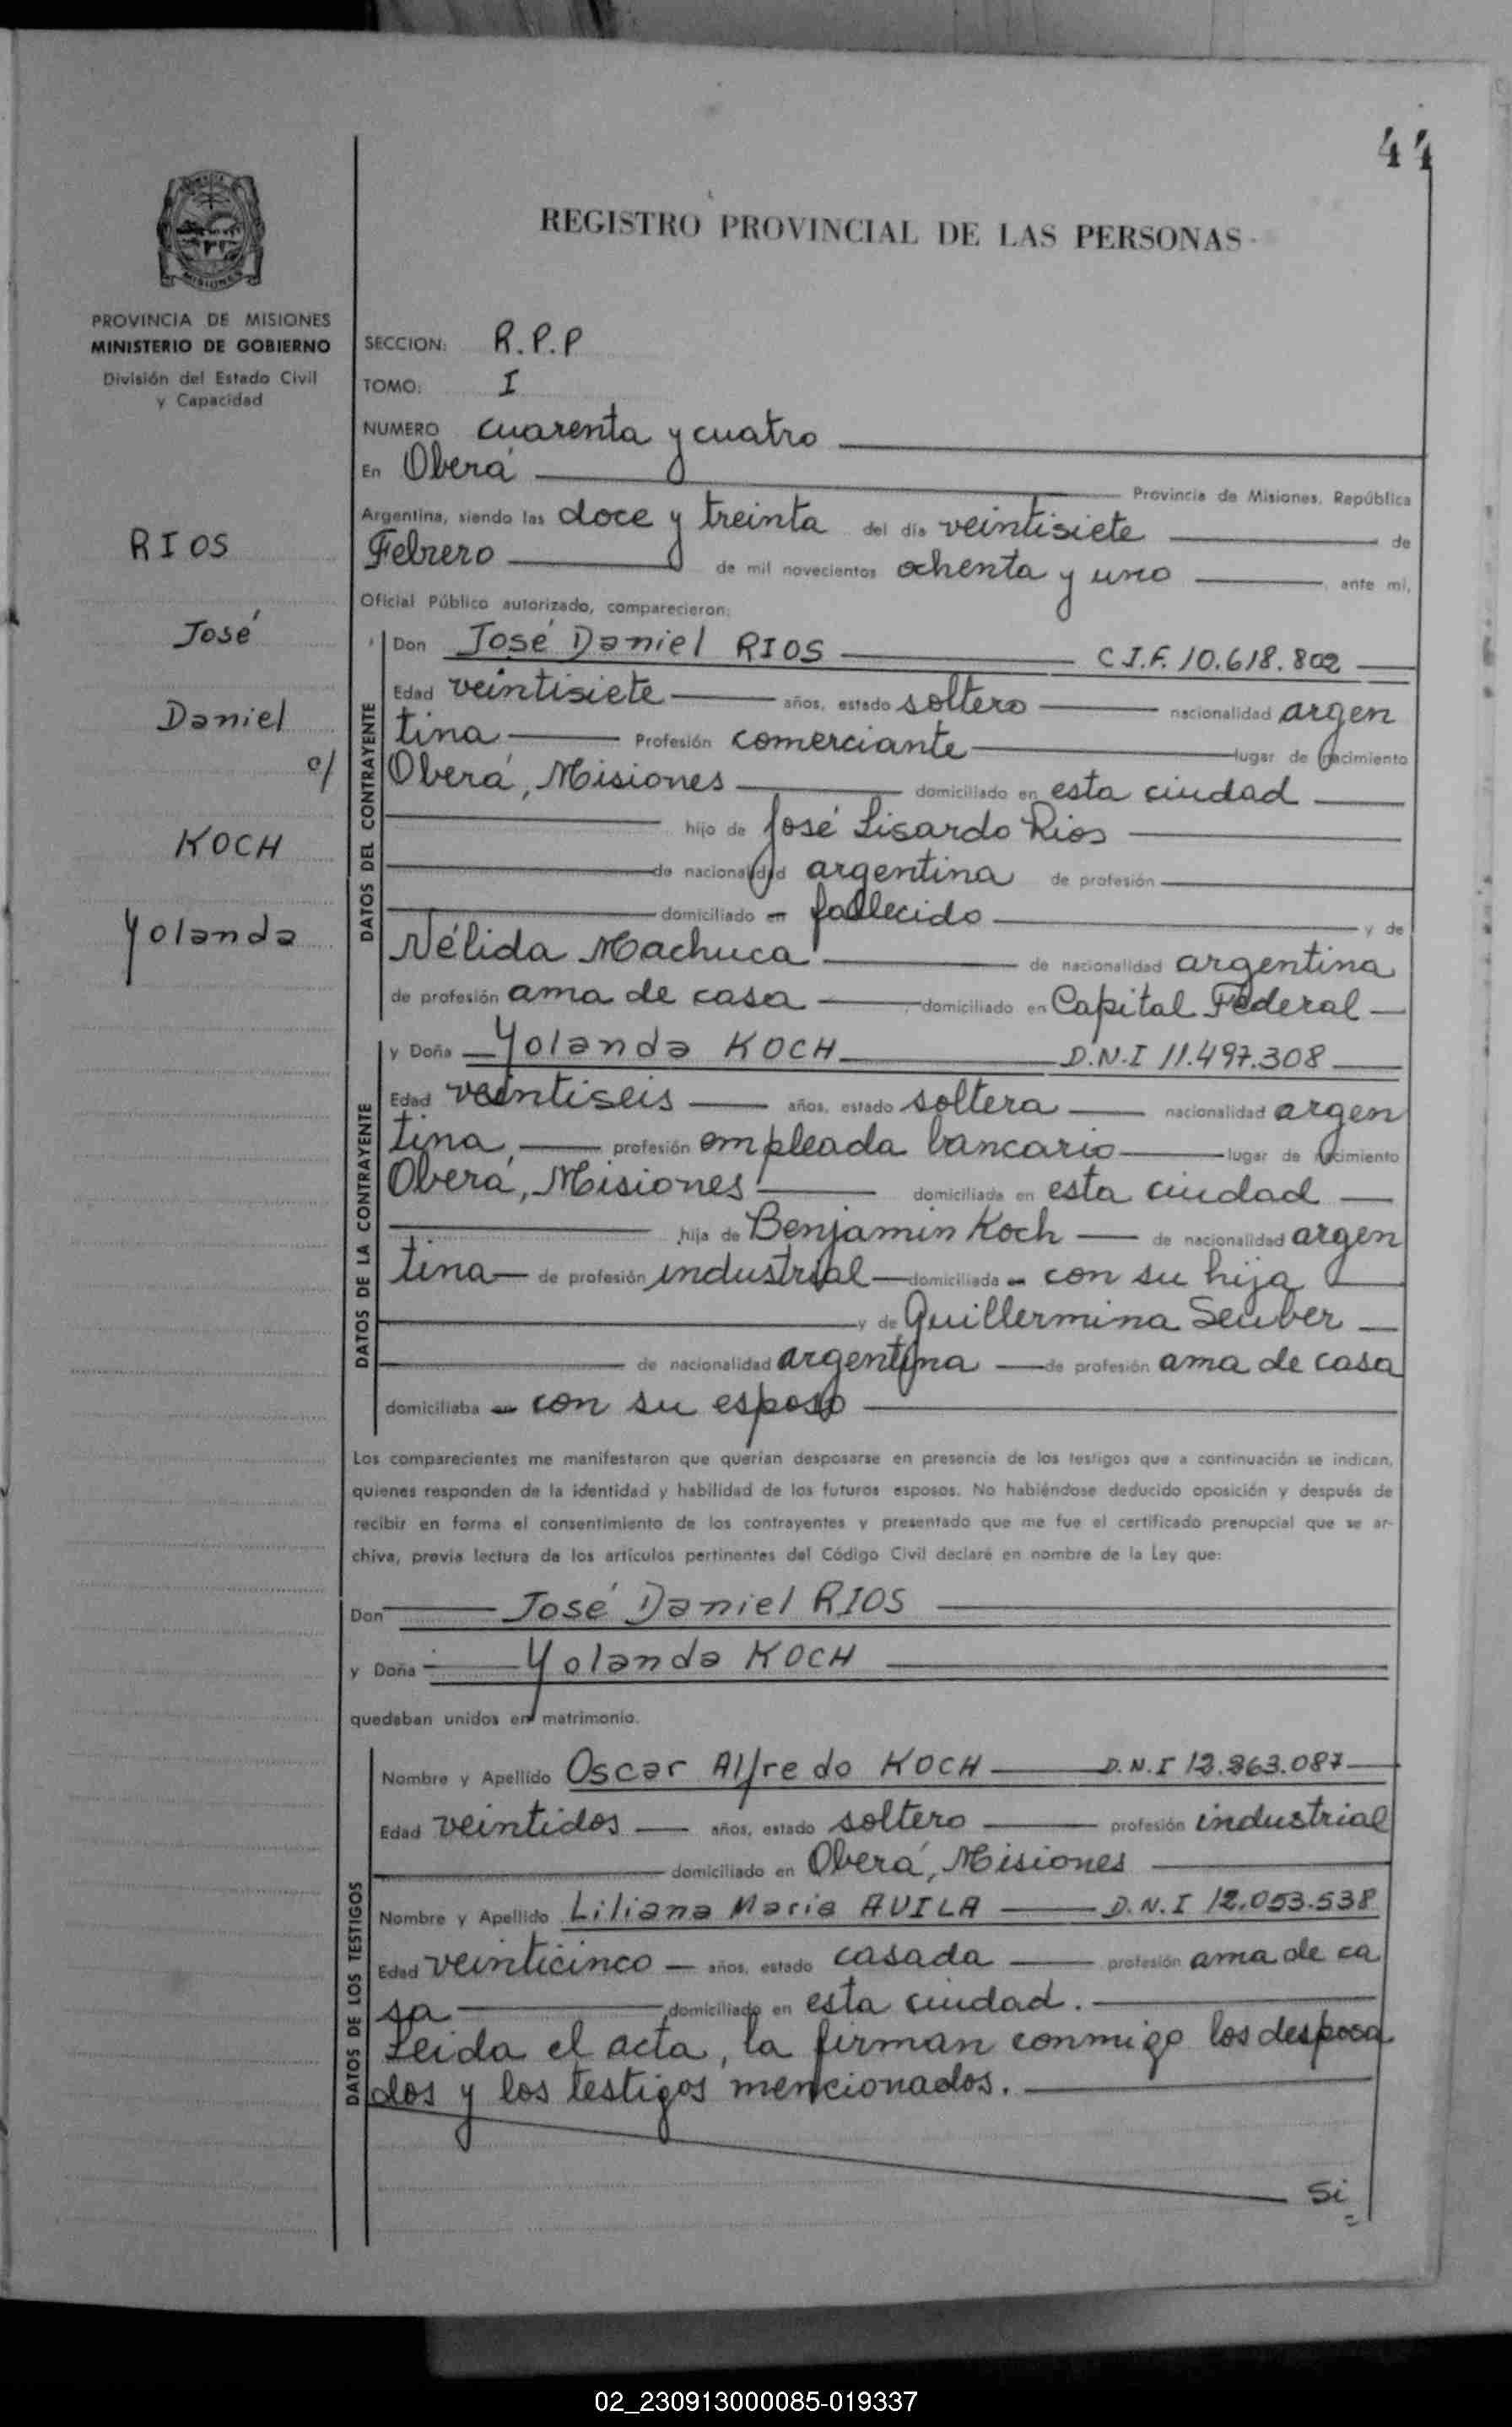 44
REGISTRO PROVINCIAL DE LAS PERSONAS
MISIONES
PROVINCIA DE MISIONES
MINISTERIO DE GOBIERNO
División del Estado Civil
y Capacidad
RIOS
José
Daniel
c/
KOCH
Yolanda
SECCION: R.P.P
TOMO: I
NUMERO cuarenta y cuatro
En Oberá Provincia de Misiones, República
Argentina, siendo las doce y treinta del día veintisiete de
Febrero de mil novecientos ochenta y uno, ante mí,
Oficial Público autorizado, comparecieron:
DATOS DEL CONTRAYENTE
Don José Daniel RIOS C.I.F. 10.618.802
Edad veintisiete años, estado soltero nacionalidad argen
tina Profesión comerciante lugar de nacimiento
Oberá, Misiones domiciliado en esta ciudad
hijo de José Lisardo Rios
de nacionalidad argentina de profesión
domiciliado en fallecido y de
Nélida Machuca de nacionalidad argentina
de profesión ama de casa domiciliado en Capital Federal
DATOS DE LA CONTRAYENTE
y Doña Yolanda KOCH D.N.I 11.497.308
Edad veintiseis años, estado soltera nacionalidad argen
tina, profesión empleada bancario lugar de nacimiento
Oberá, Misiones domiciliada en esta ciudad
hija de Benjamin Koch de nacionalidad argen
tina de profesión industrial domiciliada en con su hija
y de Guillermina Seuber
de nacionalidad argentina de profesión ama de casa
domiciliaba en con su esposo
Los comparecientes me manifestaron que querían desposarse en presencia de los testigos que a continuación se indican,
quienes responden de la identidad y habilidad de los futuros esposos. No habiéndose deducido oposición y después de
recibir en forma el consentimiento de los contrayentes y presentado que me fue el certificado prenupcial que se ar-
chiva, previa lectura de los artículos pertinentes del Código Civil declaré en nombre de la Ley que:
Don José Daniel RIOS
y Doña Yolanda KOCH
quedaban unidos en matrimonio.
DATOS DE LOS TESTIGOS
Nombre y Apellido Oscar Alfredo KOCH D.N.I
Edad veintidos años, estado soltero profesión industrial
domiciliado en Oberá, Misiones
Nombre y Apellido Liliana Maria AVILA D.N.I 12.053.538
Edad veinticinco años, estado casada profesión ama de ca
sa domiciliado en esta ciudad.
Leida el acta, la firman conmigo los desposa
dos y los testigos mencionados.
Si
02_230913000085-019337